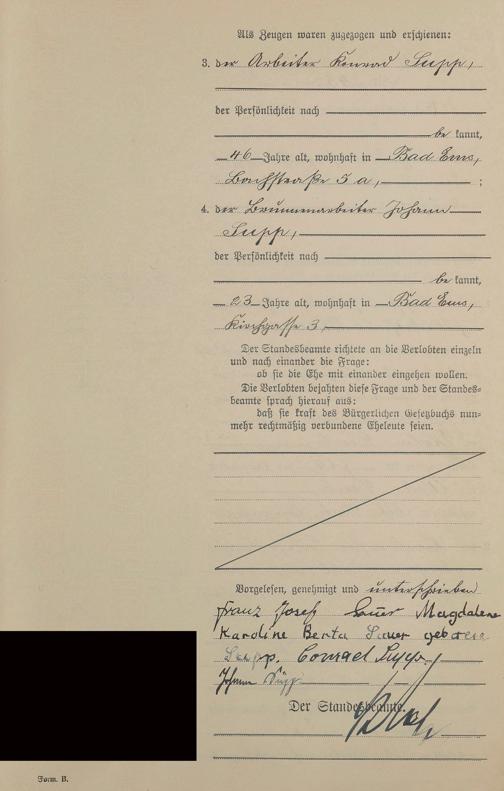 Als Zeugen waren zugezogen und erschienen:
3. der Arbeiter Konrad Supp,
der Persönlichkeit nach
be kannt,
46 Jahre alt, wohnhaft in Bad Ems,
Bachstraße 5 a, ;
4. der Brunnenarbeiter Johann
Supp,
der Persönlichkeit nach
be kannt,
23 Jahre alt, wohnhaft in Bad Ems,
Kirchgasse 3,
Der Standesbeamte richtete an die Verlobten einzeln
und nach einander die Frage:
ob sie die Ehe mit einander eingehen wollen.
Die Verlobten bejahten diese Frage und der Standes-
beamte sprach hierauf aus:
daß sie kraft des Bürgerlichen Gesetzbuchs nun-
mehr rechtmäßig verbundene Eheleute seien.
Vorgelesen, genehmigt und unterschrieben
Franz Josef Sauer Magdalene
Karoline Berta Sauer geborene
Supp. Conrad Supp.
Johann Supp
Der Standesbeamte.
Form. B.